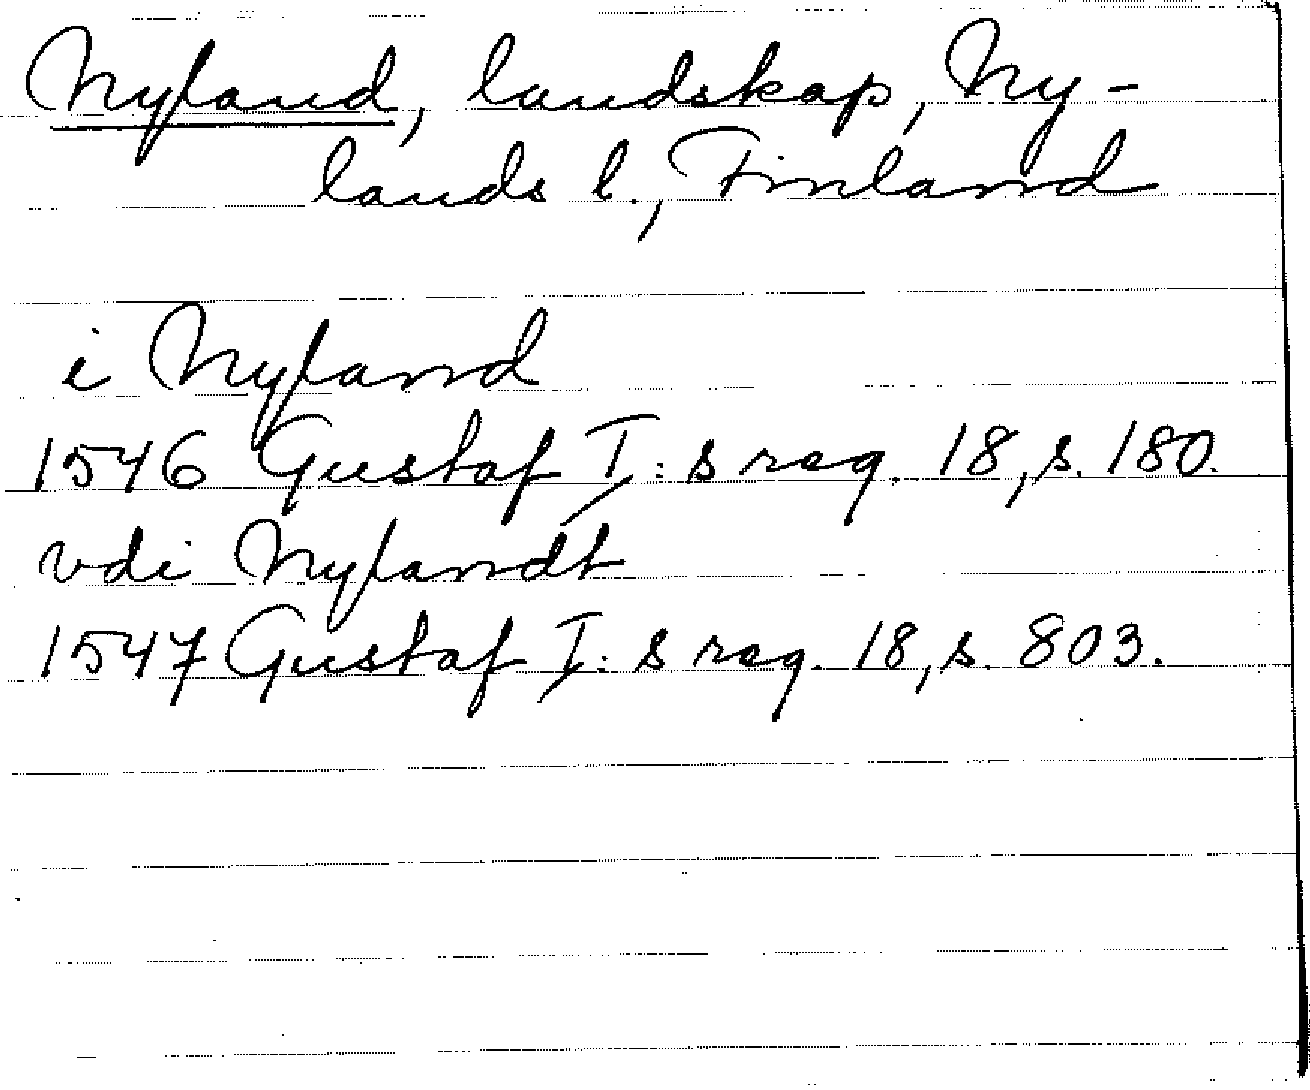 Nyland, landskap, Ny-
lands l., Finland
i Nyland
1546 Gustaf I: s reg. 18, s. 180.
vdi Nylandt
1547 Gustaf I: s reg. 18, s. 803.